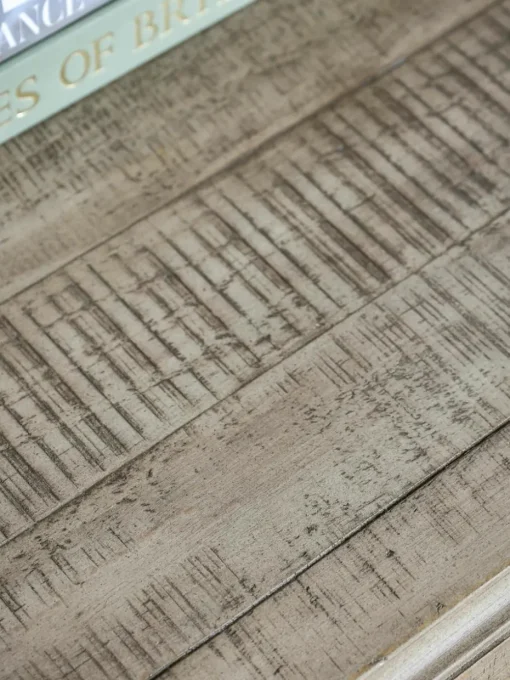 ANCE
ES OF BR